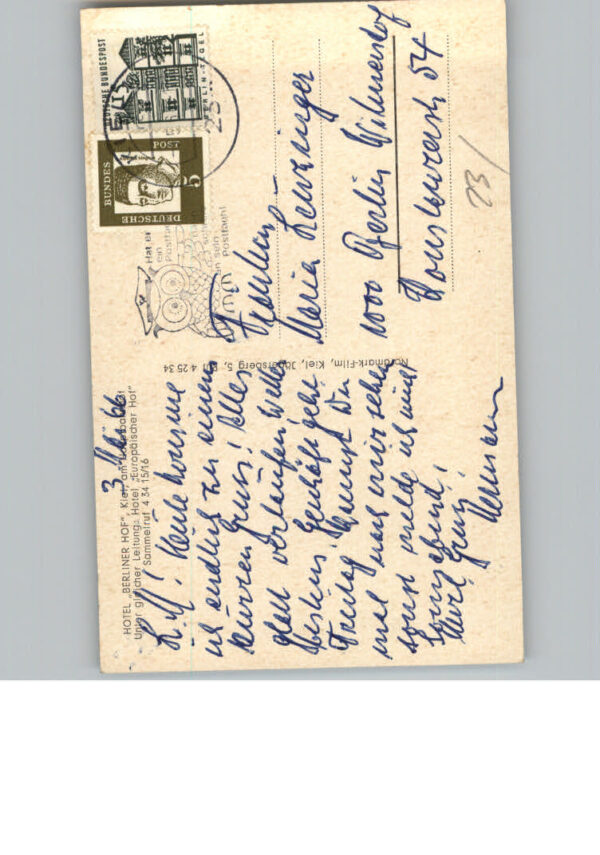 HOTEL „BERLINER HOF", Kiel, am Hauptbahnhof
Unter gleicher Leitung: Hotel „Europäischer Hof"
Sammelruf 4 34 15/16
3. 66
L. M! Heute komme
ich endlich zu einem
kurzen Gruss! Alles
glatt verlaufen, Wetter
bestens, Geschäft geht.
Freitag kommst Du
mal nach mir sehen
sonst melde ich mich
Sonnabend!
Herzl. Gruss
Hermann
Nordmark-Film, Kiel, Jägersberg 5, Ruf 4 25 34
DEUTSCHE BUNDESPOST
BERLIN-TEGEL
DEUTSCHE
BUNDES
POST
5
23
Hat er
ein
Postfach
schon
sein
Postfach?
Fräulein
Maria
1000 Berlin Wilmersdorf
54
23/